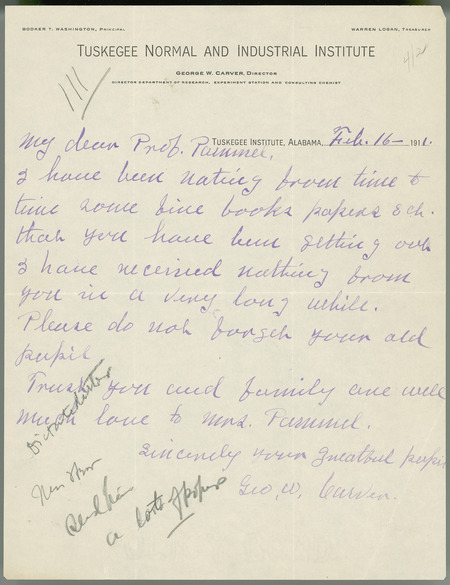 BOOKER T. WASHINGTON, PRINCIPAL
WARREN LOGAN, TREASURER
TUSKEGEE NORMAL AND INDUSTRIAL INSTITUTE
GEORGE W. CARVER, DIRECTOR
DIRECTOR DEPARTMENT OF RESEARCH, EXPERIMENT STATION AND CONSULTING CHEMIST
111
TUSKEGEE INSTITUTE, ALABAMA, Feb. 16- 1911.
My dear Prof. Pammel,
I have been noting from time to
time some fine books papers &ch.
that you have been getting out
I have received nothing from
you in a very long while.
Please do not forget your old
pupil
Trust you and family are well
Much love to Mrs. Pammel.
Sincerely your greatful pupil
Geo. W. Carver.
Send him
a lot of papers